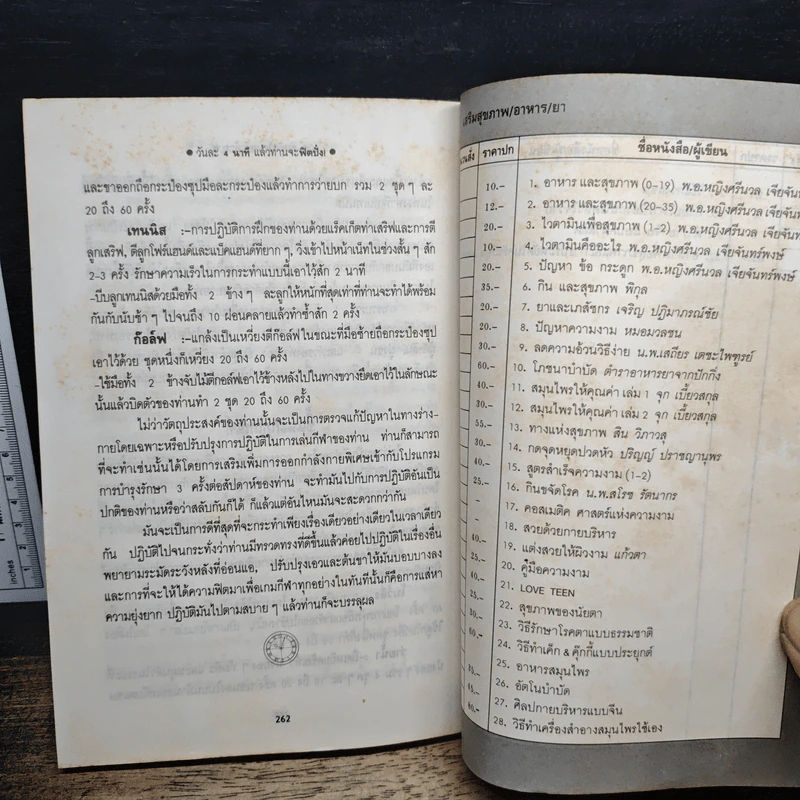 ● วันละ 4 นาที แล้วท่านจะฟิตปั๋ง! ●
และขาออกถือกระป๋องซุปมือละกระป๋องแล้วทำการว่ายบก รวม 2 ชุด ๆ ละ
20 ถึง 60 ครั้ง
เทนนิส :-การปฏิบัติการฝึกของท่านด้วยแร็คเก็ตท่าเสริฟและการตี
ลูกเสริฟ, ตีลูกโฟร์แฮนด์และแบ็คแฮนด์ที่ยาก ๆ, วิ่งเข้าไปหน้าเน็ทในช่วงสั้น ๆ สัก
2-3 ครั้ง รักษาความเร็วในการกระทำแบบนี้เอาไว้สัก 2 นาที
-บีบลูกเทนนิสด้วยมือทั้ง 2 ข้าง ๆ ละลูกให้หนักที่สุดเท่าที่ท่านจะทำได้พร้อม
กันกับนับช้า ๆ ไปจนถึง 10 ผ่อนคลายแล้วทำซ้ำสัก 2 ครั้ง
ก๊อล์ฟ :-แกล้งเป็นเหวี่ยงตีก๊อล์ฟในขณะที่มือซ้ายถือกระป๋องซุป
เอาไว้ด้วย ชุดหนึ่งก็เหวี่ยง 20 ถึง 60 ครั้ง
-ใช้มือทั้ง 2 ข้างจับไม้ตีกอล์ฟเอาไว้ข้างหลังไปในทางขวางยึดเอาไว้ในลักษณะ
นั้นแล้วบิดตัวของท่านทำ 2 ชุด 20 ถึง 60 ครั้ง
ไม่ว่าวัตถุประสงค์ของท่านนั้นจะเป็นการตรวจแก้ปัญหาในทางร่าง-
กายโดยเฉพาะหรือปรับปรุงการปฏิบัติในการเล่นกีฬาของท่าน ท่านก็สามารถ
ที่จะทำเช่นนั้นได้โดยการเสริมเพิ่มการออกกำลังกายพิเศษเข้ากับโปรแกรม
การบำรุงรักษา 3 ครั้งต่อสัปดาห์ของท่าน จะทำมันไปกับการปฏิบัติอันเป็น
ปกติของท่านหรือว่าสลับกันก็ได้ ก็แล้วแต่อันไหนมันจะสะดวกกว่ากัน
มันจะเป็นการดีที่สุดที่จะกระทำเพียงเรื่องเดียวอย่างเดียวในเวลาเดียว
กัน ปฏิบัติไปจนกระทั่งว่าท่านมีทรวดทรงที่ดีขึ้นแล้วค่อยไปปฏิบัติในเรื่องอื่น
พยายามระมัดระวังหลังที่อ่อนแอ, ปรับปรุงเอวและต้นขาให้มันบอบบางลง
และการที่จะให้ได้ความฟิตมาเพื่อเกมกีฬาทุกอย่างในทันทีนั้นก็คือการแส่หา
ความยุ่งยาก ปฏิบัติมันไปตามสบาย ๆ แล้วท่านก็จะบรรลุผล
262
เสริมสุขภาพ/อาหาร/ยา
ราคาปก ชื่อหนังสือ/ผู้เขียน
10.- 1. อาหาร และสุขภาพ (0-19) พ.อ.หญิงศรีนวล เจียจันทร์
12.- 2. อาหาร และสุขภาพ (20-35) พ.อ.หญิงศรีนวล เจียจันท
20.- 3. ไวตามินเพื่อสุขภาพ (1-2) พ.อ.หญิงศรีนวล เจียจันทร์
10.- 4. ไวตามินคืออะไร พ.อ.หญิงศรีนวล เจียจันทร์พงษ์
20.- 5. ปัญหา ข้อ กระดูก พ.อ.หญิงศรีนวล เจียจันทร์พงษ์
35.- 6. กิน และสุขภาพ พิกุล
7. ยาและเภสัชกร เจริญ ปฏิมาภรณ์ชัย
8. ปัญหาความงาม หมอมวลชน
9. ลดความอ้วนวิธีง่าย น.พ.เสถียร เตชะไพฑูรย์
10. โภชนาบำบัด ตำราอาหารยาจากปักกิ่ง
11. สมุนไพรให้คุณค่า เล่ม 1 จุก เบี้ยวสกุล
12. สมุนไพรให้คุณค่า เล่ม 2 จุก เบี้ยวสกุล
13. ทางแห่งสุขภาพ สิน วิภาวสุ
14. กดจุดหยุดปวดหัว ปริญญ์ ปราชญานุพร
15. สูตรสำเร็จความงาม (1-2)
16. กินขจัดโรค น.พ.สโรช รัตนากร
17. คอสเมติค ศาสตร์แห่งความงาม
18. สวยด้วยกายบริหาร
19. แต่งสวยให้ผิวงาม แก้วตา
20. คู่มือความงาม
21. LOVE TEEN
22. สุขภาพของนัยตา
23. วิธีรักษาโรคตาแบบธรรมชาติ
24. วิธีทำเค็ก & คุ๊กกี้แบบประยุกต์
25. อาหารสมุนไพร
26. อัตโนบำบัด
27. ศิลปกายบริหารแบบจีน
28. วิธีทำเครื่องสำอางสมุนไพรใช้เอง